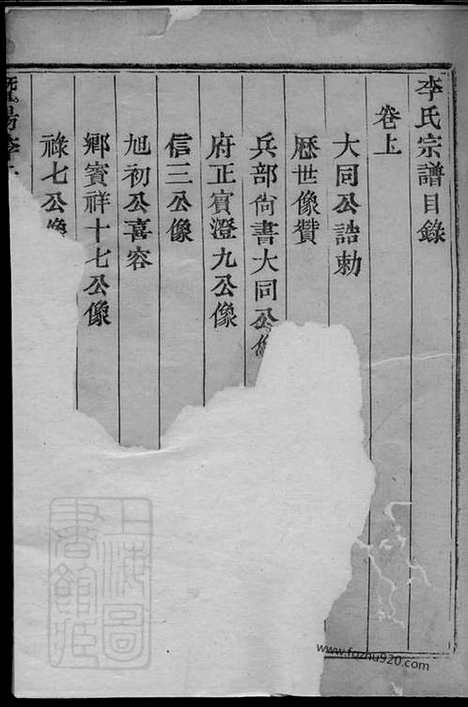 李氏宗譜目錄
卷上
大同公誥勅
歷世像贊
兵部尙書大同公像
府正賓澄九公像
信三公像
旭初公喜容
鄉賓祥十七公像
祿七公像
上海圖書館
www.fozhu920.com